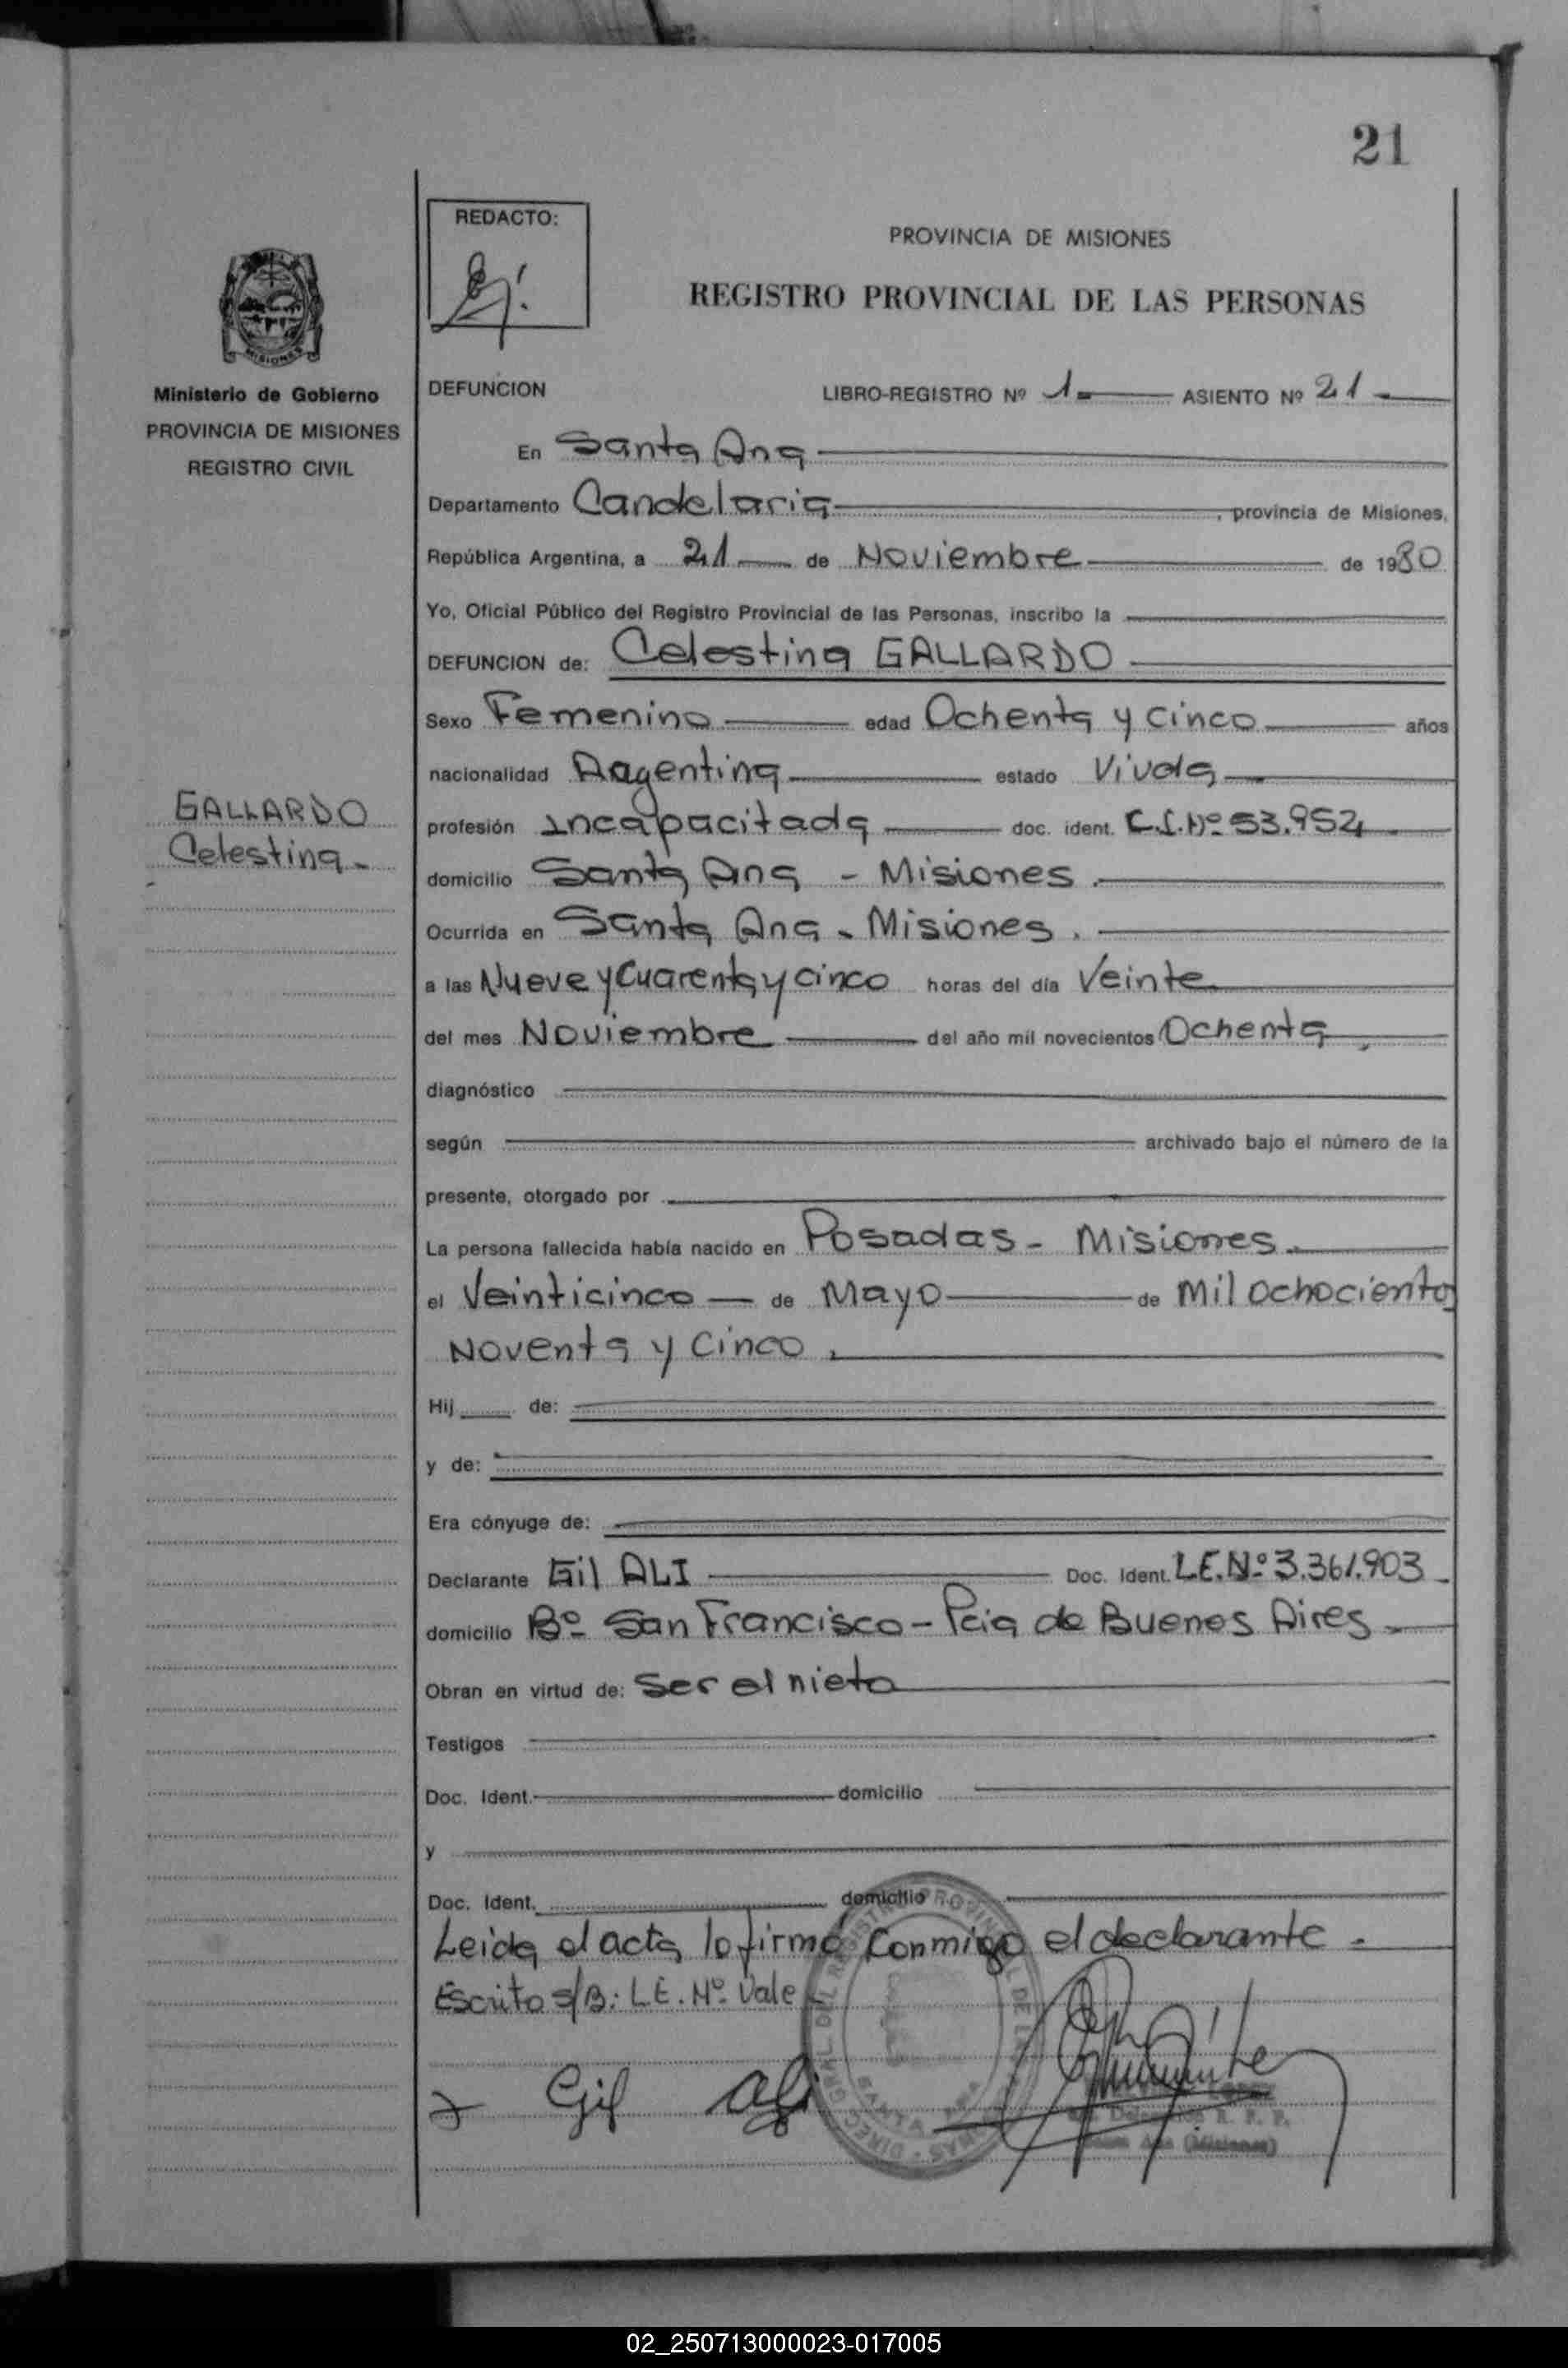 21
REDACTO:
PROVINCIA DE MISIONES
REGISTRO PROVINCIAL DE LAS PERSONAS
MISIONES
Ministerio de Gobierno
PROVINCIA DE MISIONES
REGISTRO CIVIL
GALLARDO
Celestina -
DEFUNCION LIBRO-REGISTRO Nº 1 ASIENTO Nº 21
En Santa Ana
Departamento Candelaria , provincia de Misiones,
República Argentina, a 21 de Noviembre de 1980
Yo, Oficial Público del Registro Provincial de las Personas, inscribo la
DEFUNCION de: Celestina GALLARDO
Sexo Femenino edad Ochenta y cinco años
nacionalidad Aagentina estado Viuda
profesión incapacitada doc. ident. C.I.Nº 53.952
domicilio Santa Ana - Misiones.
Ocurrida en Santa Ana - Misiones.
a las Nueve y Cuarenta y cinco horas del día Veinte
del mes Noviembre del año mil novecientos Ochenta
diagnóstico
según archivado bajo el número de la
presente, otorgado por
La persona fallecida había nacido en Posadas - Misiones.
el Veinticinco de Mayo de Mil ochocientos
Noventa y Cinco.
Hij de:
y de:
Era cónyuge de:
Declarante Gil ALI Doc. Ident. L.E.Nº 3.361.903
domicilio Bº San Francisco - Pcia de Buenos Aires
Obran en virtud de: Ser el nieto
Testigos
Doc. Ident. domicilio
y
Doc. Ident. domicilio
Leida el acta, lo firmó conmigo el declarante.
Escrito s/B: L.E. Nº Vale
Gil Ali
Delegación R. P. P.
Santa Ana (Misiones)
02_250713000023-017005